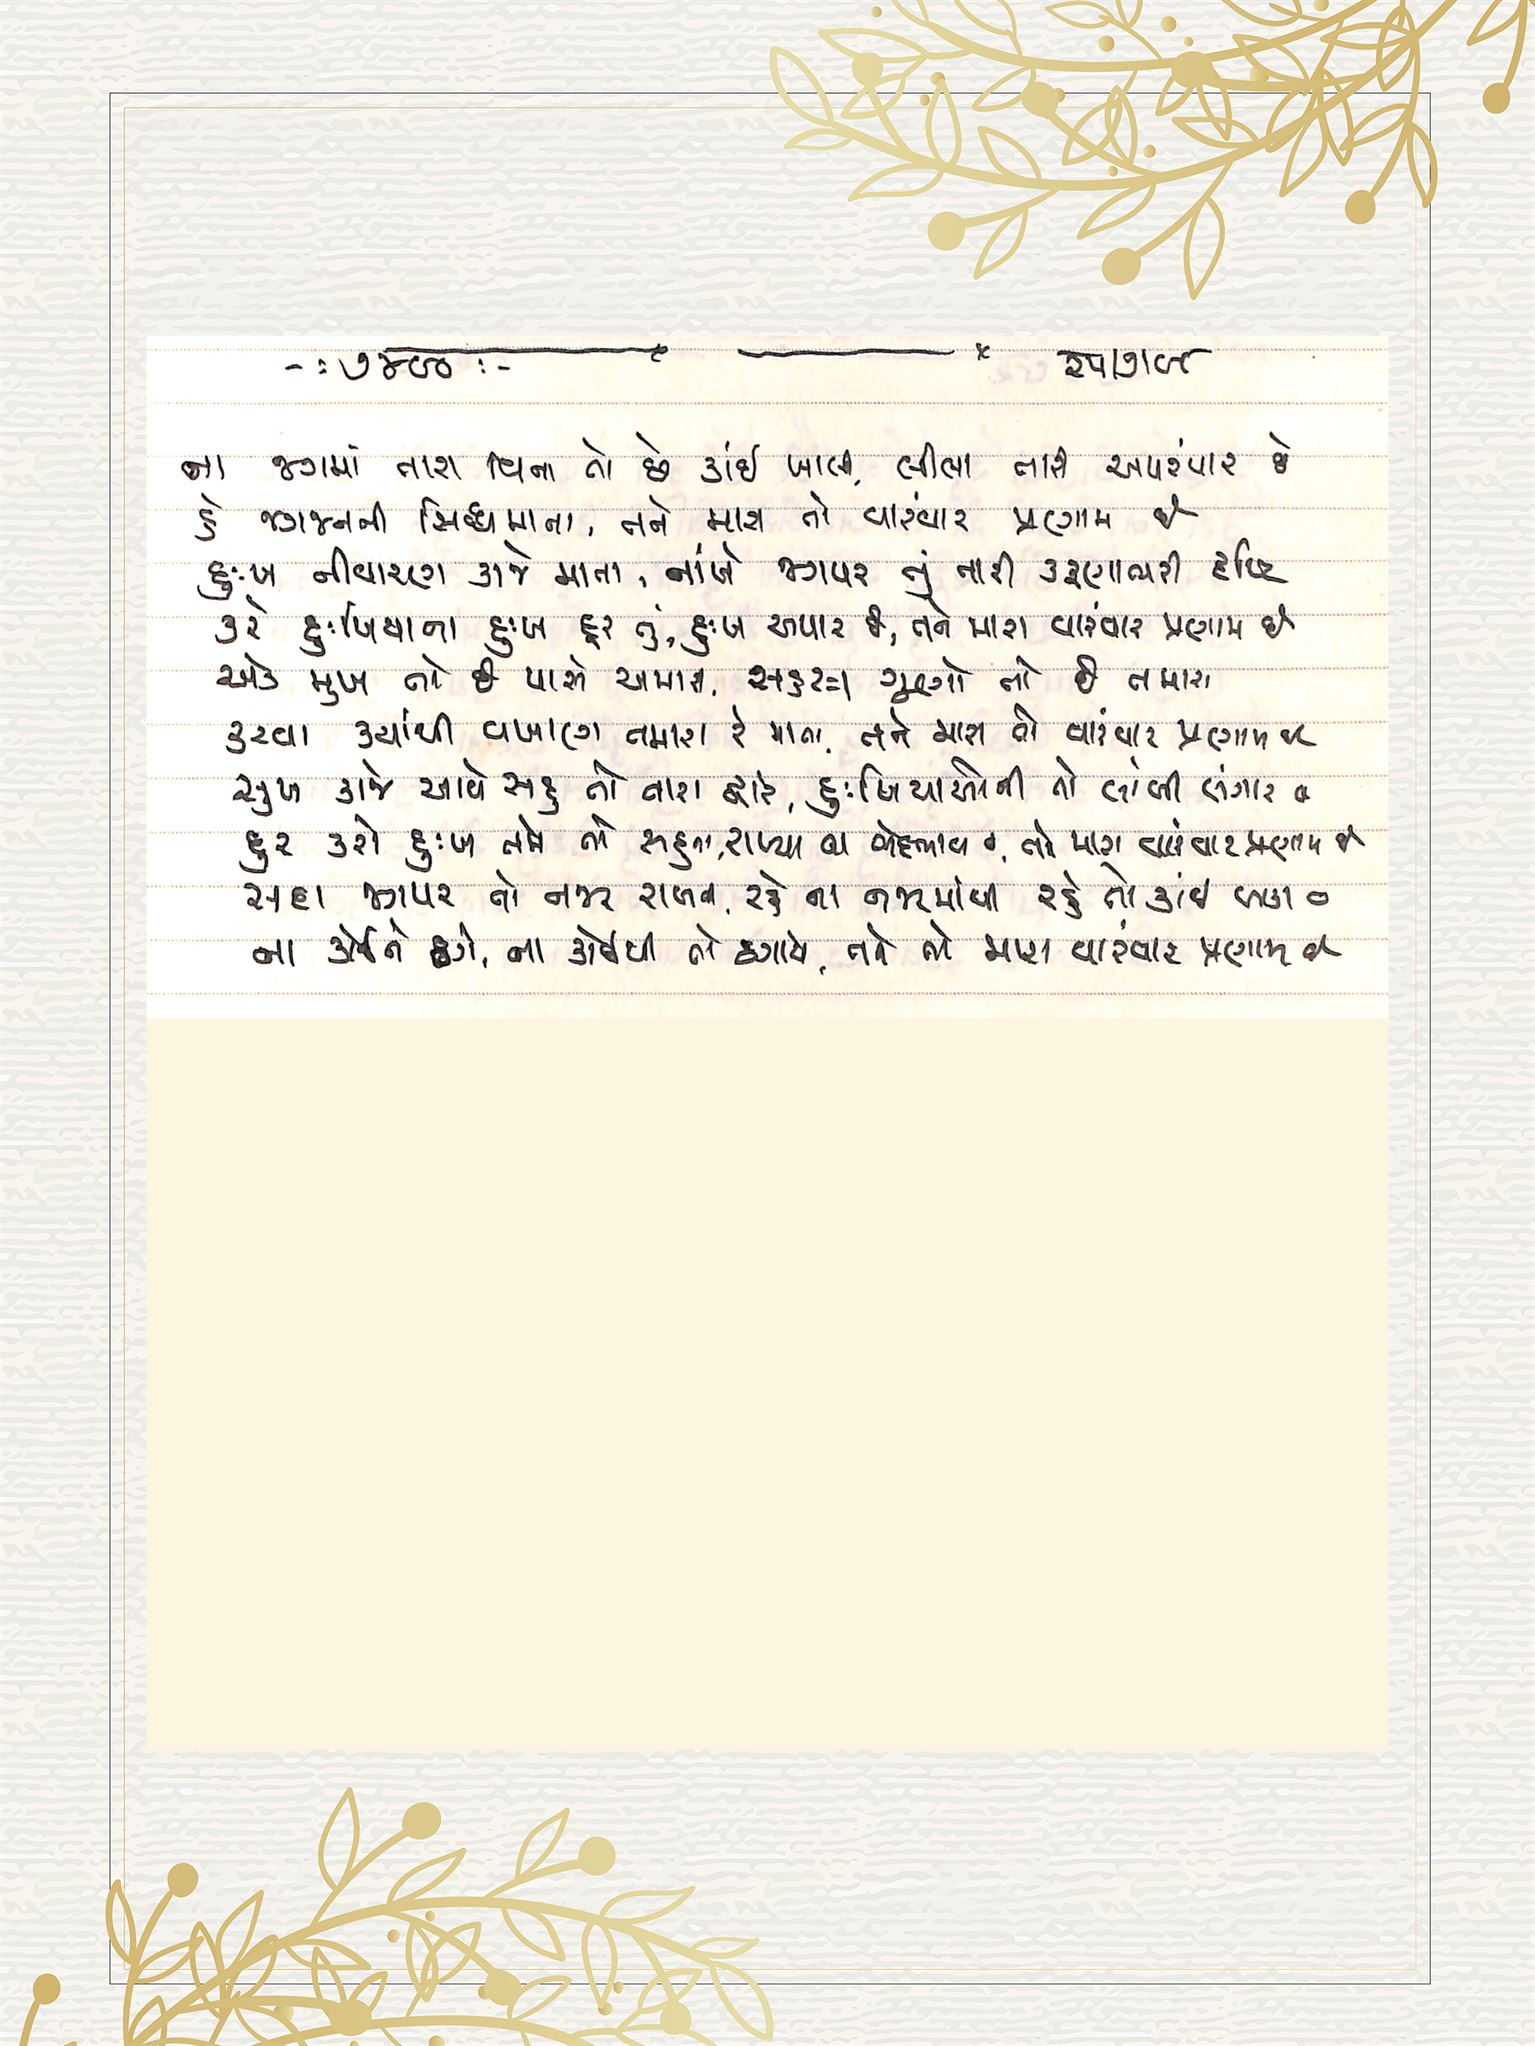 -: ૭૪૯૦ :-
ના જગમાં તારા વિના તો છે કાંઈ ખાલી, લીલા તારી અપરંપાર છે
હે જગજનની સિધ્ધમાતા, તને મારા તો વારંવાર પ્રણામ છે
દુઃખ નીવારણ કાજે માતા, નાંખે જગપર તું તારી કરૂણાભરી દ્રષ્ટિ
કરે દુઃખિયાના દુઃખ દૂર તું, દુઃખ અપાર છે, તને મારા વારંવાર પ્રણામ છે
એક મુખ તો છે પાસે અમારી, ગૂણો તો છે તમારા
કરવા ક્યાંથી વખાણ તમારા રે માતા, તને મારા તો વારંવાર પ્રણામ છે
સુખ કાજે આવે સહુ તો તારા દ્વારે, દુઃખિયાઓની તો લાંબી લંગાર છે
દુર કરો દુઃખ તમે તો સહુના, રાખ્યા ના ભેદભાવ તો મારા વારંવાર પ્રણામ છે
સદા જગપર તો નજર રાખતી, રહે ના નજરમાંથી રહે તો કાંઈ
ના કોઈને ઠગે, ના કોઈથી તો ઠગાયે, તને તો મારા વારંવાર પ્રણામ છે